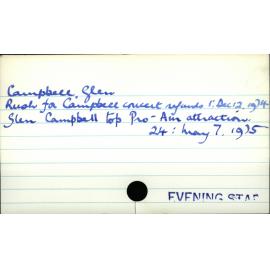 Campbell, Glen
Rush for Campbell concert refunds 1: Dec 12, 1974
Glen Campbell top Pro-Am attraction.
24: May 7, 1975
EVENING STAR